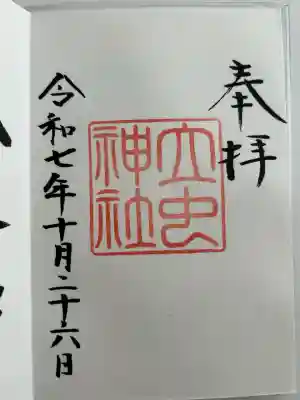 奉拝
立虫
神社
令和七年十月二十六日